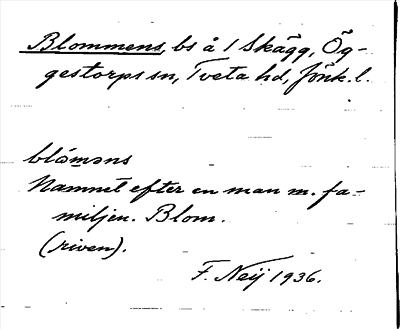 Blommens, bs å 1 Skägg, Ög-
gestorps sn, Tveta hd, Jönk. l.
blóməns
Namnet efter en man m. fa-
miljen. Blom.
(riven).
F. Neij 1936.